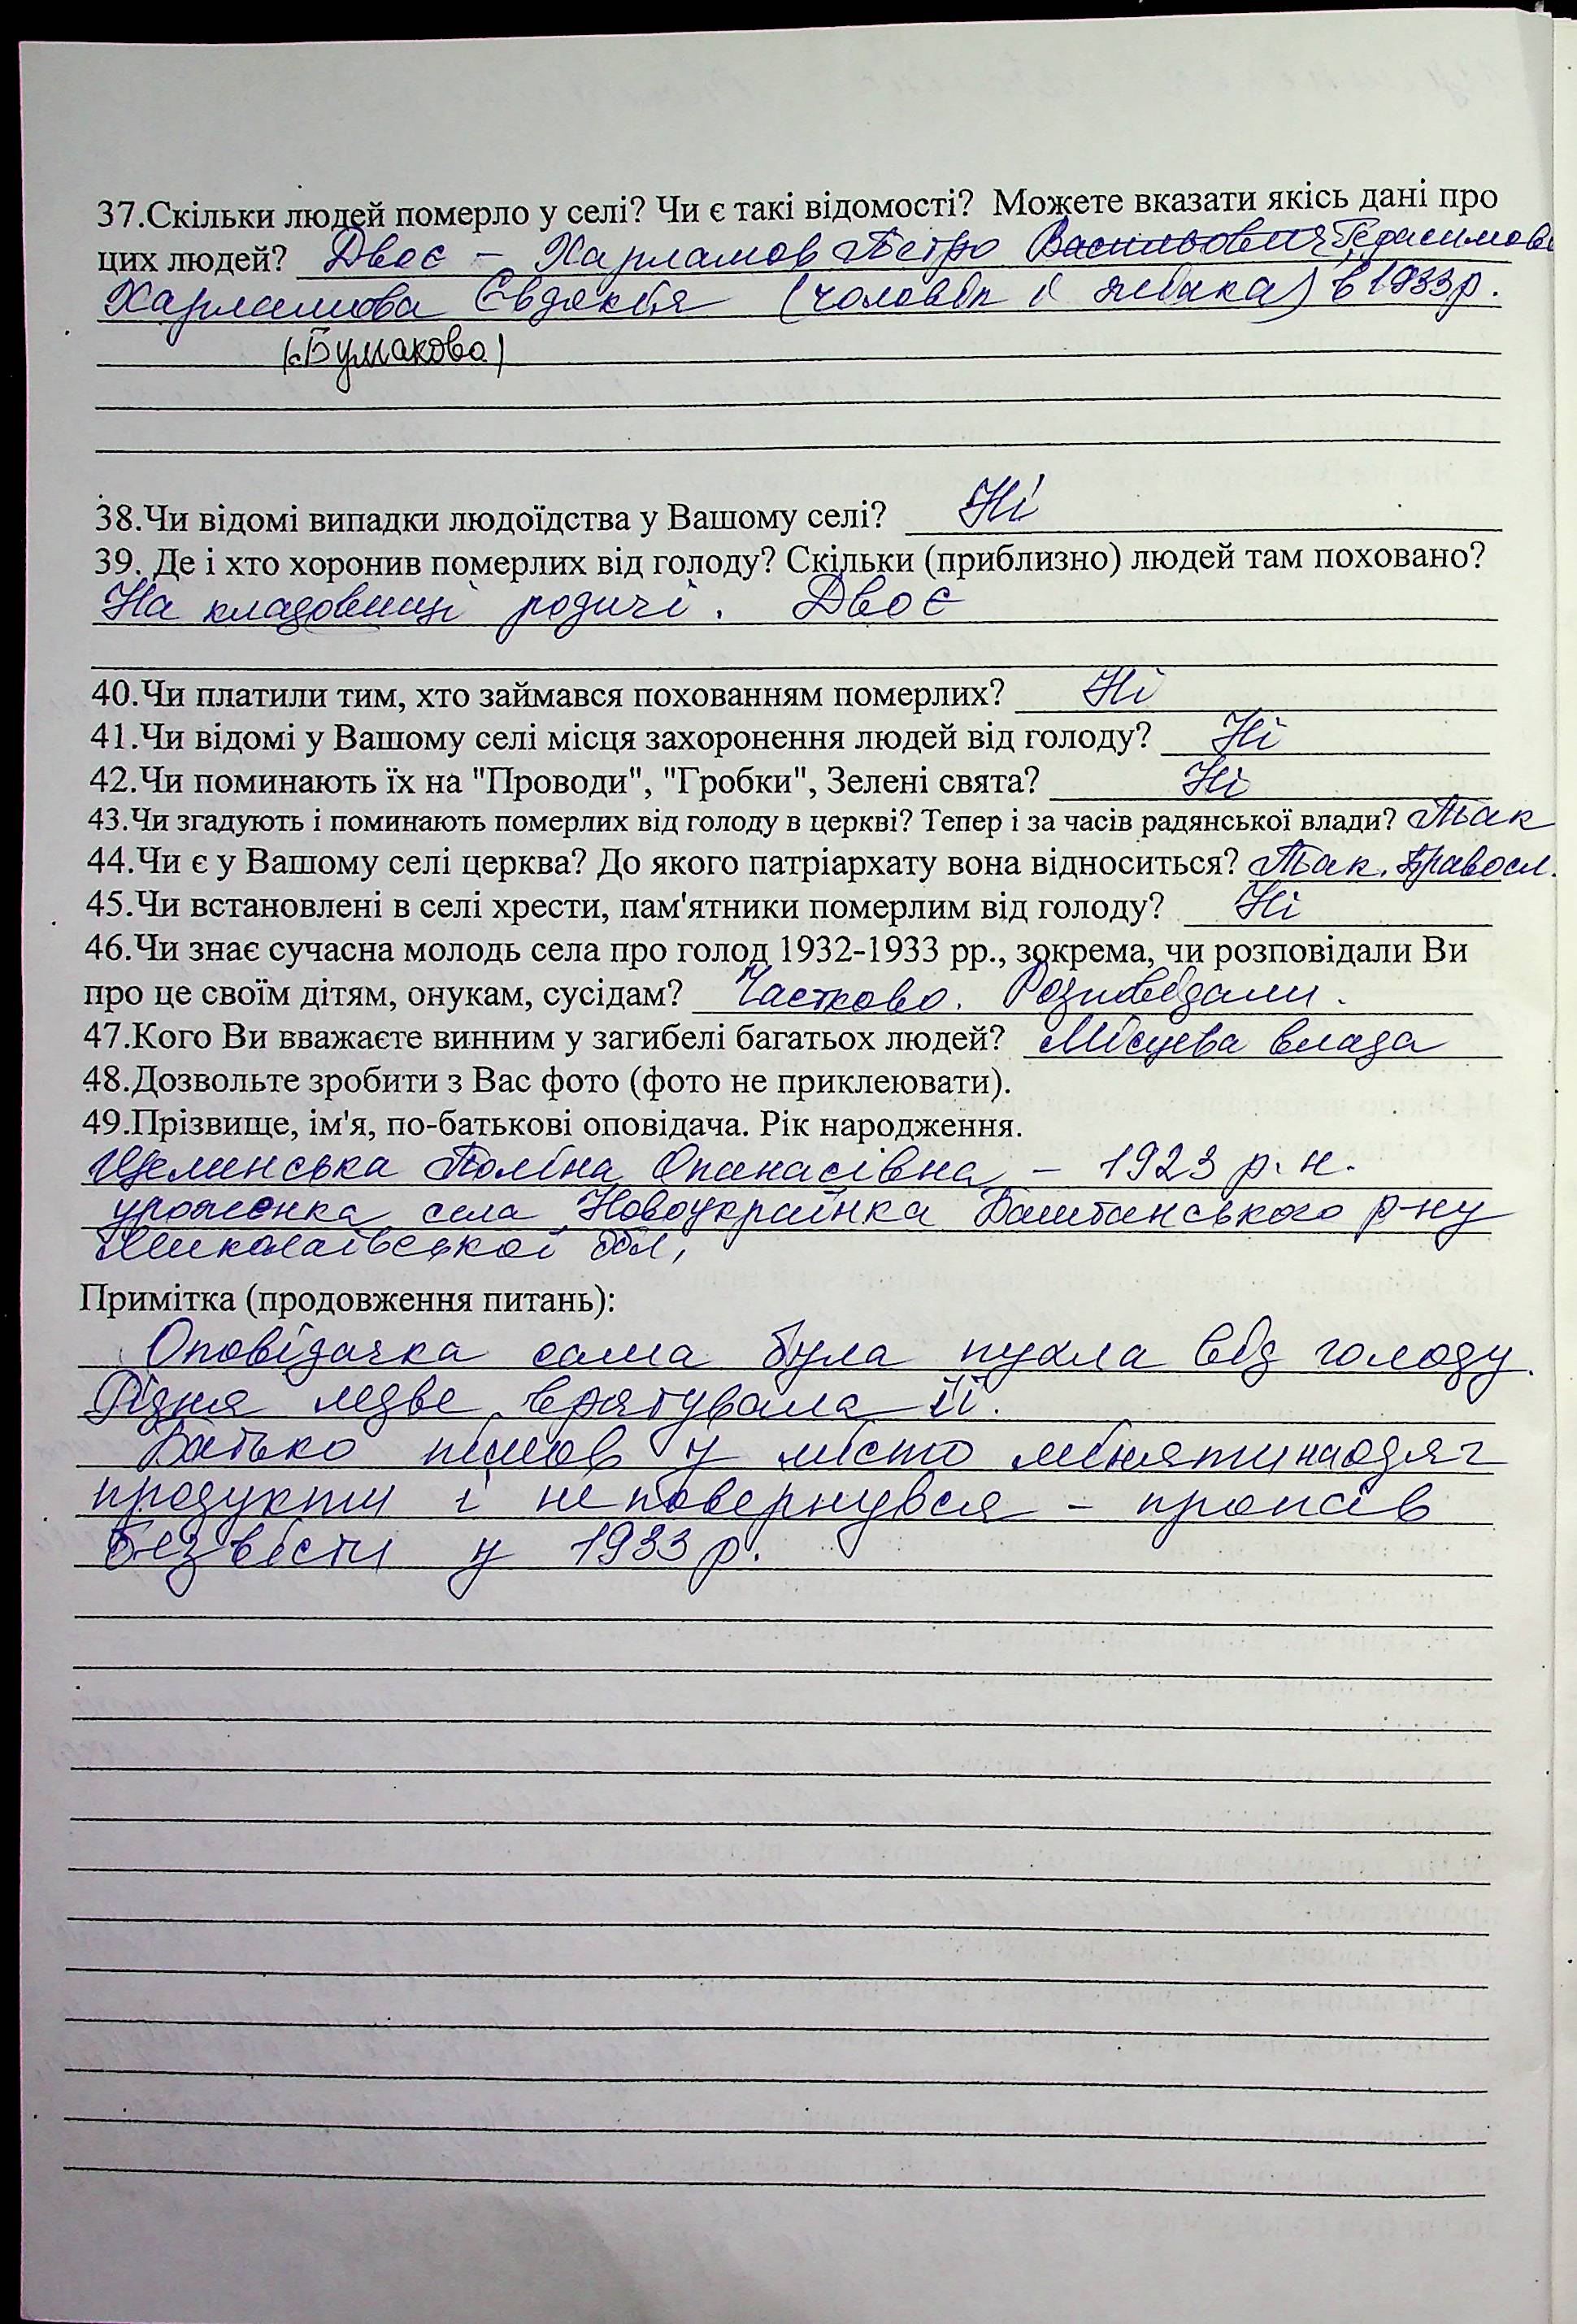 37.Скільки людей померло у селі? Чи є такі відомості? Можете вказати якісь дані про
цих людей? Двоє – Харламов Петро Васильович Герасимович
Харламова Євдокія (чоловік і жінка) в 1933 р.
(с. Бузмаково)
38.Чи відомі випадки людоїдства у Вашому селі? Ні
39. Де і хто хоронив померлих від голоду? Скільки (приблизно) людей там поховано?
На кладовищі родичі. Двоє
40.Чи платили тим, хто займався похованням померлих? Ні
41.Чи відомі у Вашому селі місця захоронення людей від голоду? Ні
42.Чи поминають їх на "Проводи", "Гробки", Зелені свята? Ні
43.Чи згадують і поминають померлих від голоду в церкві? Тепер і за часів радянської влади? Так
44.Чи є у Вашому селі церква? До якого патріархату вона відноситься? Так. Правосл.
45.Чи встановлені в селі хрести, пам'ятники померлим від голоду? Ні
46.Чи знає сучасна молодь села про голод 1932-1933 рр., зокрема, чи розповідали Ви
про це своїм дітям, онукам, сусідам? Частково. Розповідали.
47.Кого Ви вважаєте винним у загибелі багатьох людей? Місцева влада
48.Дозвольте зробити з Вас фото (фото не приклеювати).
49.Прізвище, ім'я, по-батькові оповідача. Рік народження.
Поліна Опанасівна – 1923 р. н.
уроженка села Новоукраїнка Баштанського р-ну
Миколаївської обл,
Примітка (продовження питань):
Оповідачка сама була пухла від голоду.
Рідня ледве врятувала її.
Батько пішов у місто міняти на одяг
продукти і не повернувся – пропав
безвісти у 1933 р.